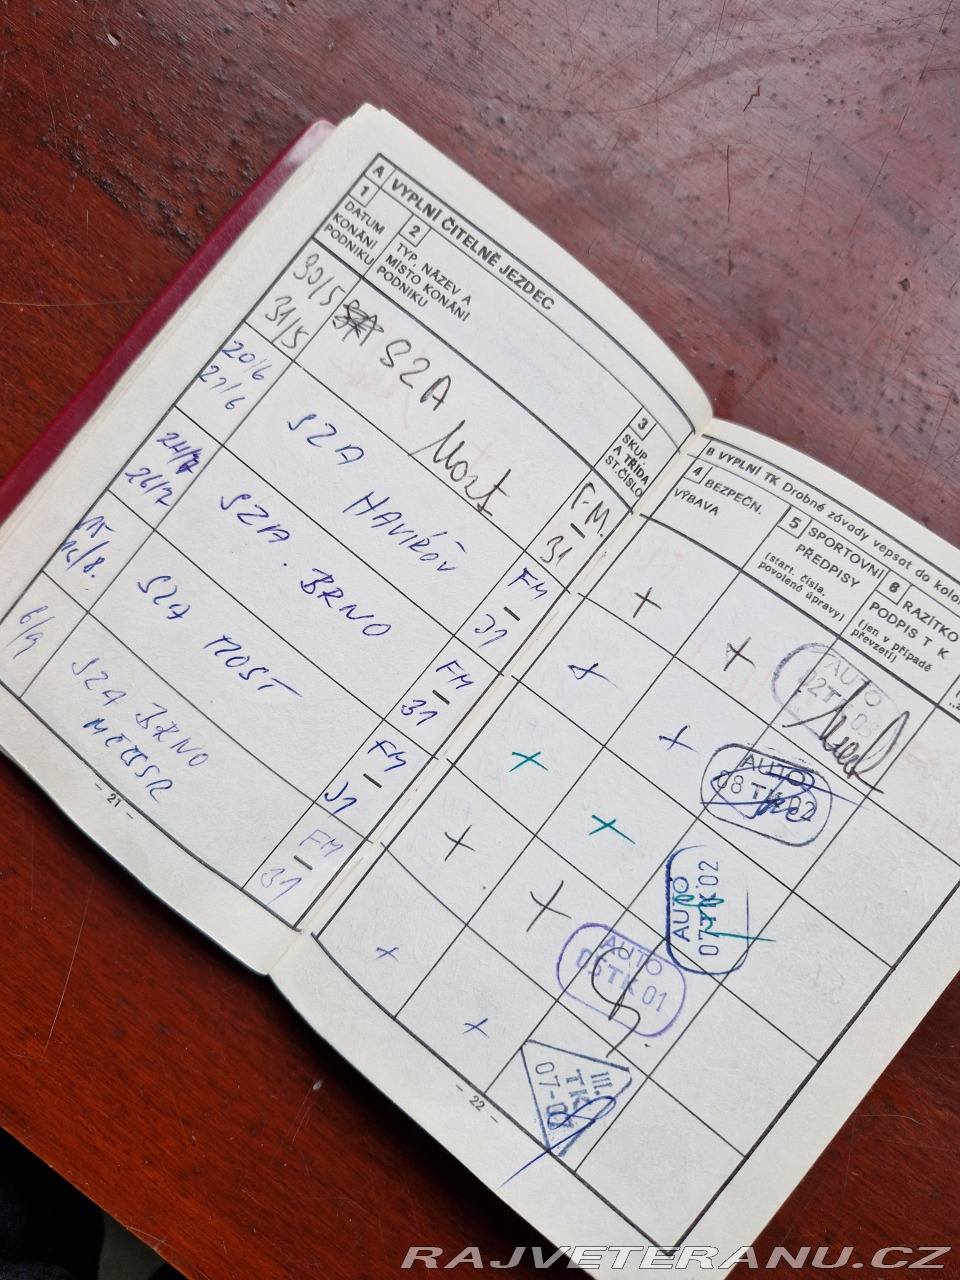 A VYPLNÍ ČITELNĚ JEZDEC
1
DATUM
KONÁNÍ
PODNIKU
2
TYP, NÁZEV A
MÍSTO KONÁNÍ
PODNIKU
3
SKUP.
A TŘÍDA
ST. ČÍSLO
30/5
31/5
SZA Most
FM.
31
20/6
21/6
SZA HAVIŘOV
FM
31
SZA. BRNO
FM
31
SZA MOST
FM
31
6/9
SZA BRNO
FM
31
- 21 -
B VYPLNÍ TK Drobné závady vepsat do
4
BEZPEČN.
VÝBAVA
5
SPORTOVNÍ
PŘEDPISY
(start. čísla,
povolené úpravy)
6
RAZÍTKO
PODPIS T K
(jen v případě
převzetí)
AUTO
02TK03
AUTO
08 TK 02
AUTO
07TK02
AUTO
05TK 01
III.
TK
- 22 -
RAJVETERANU.CZ